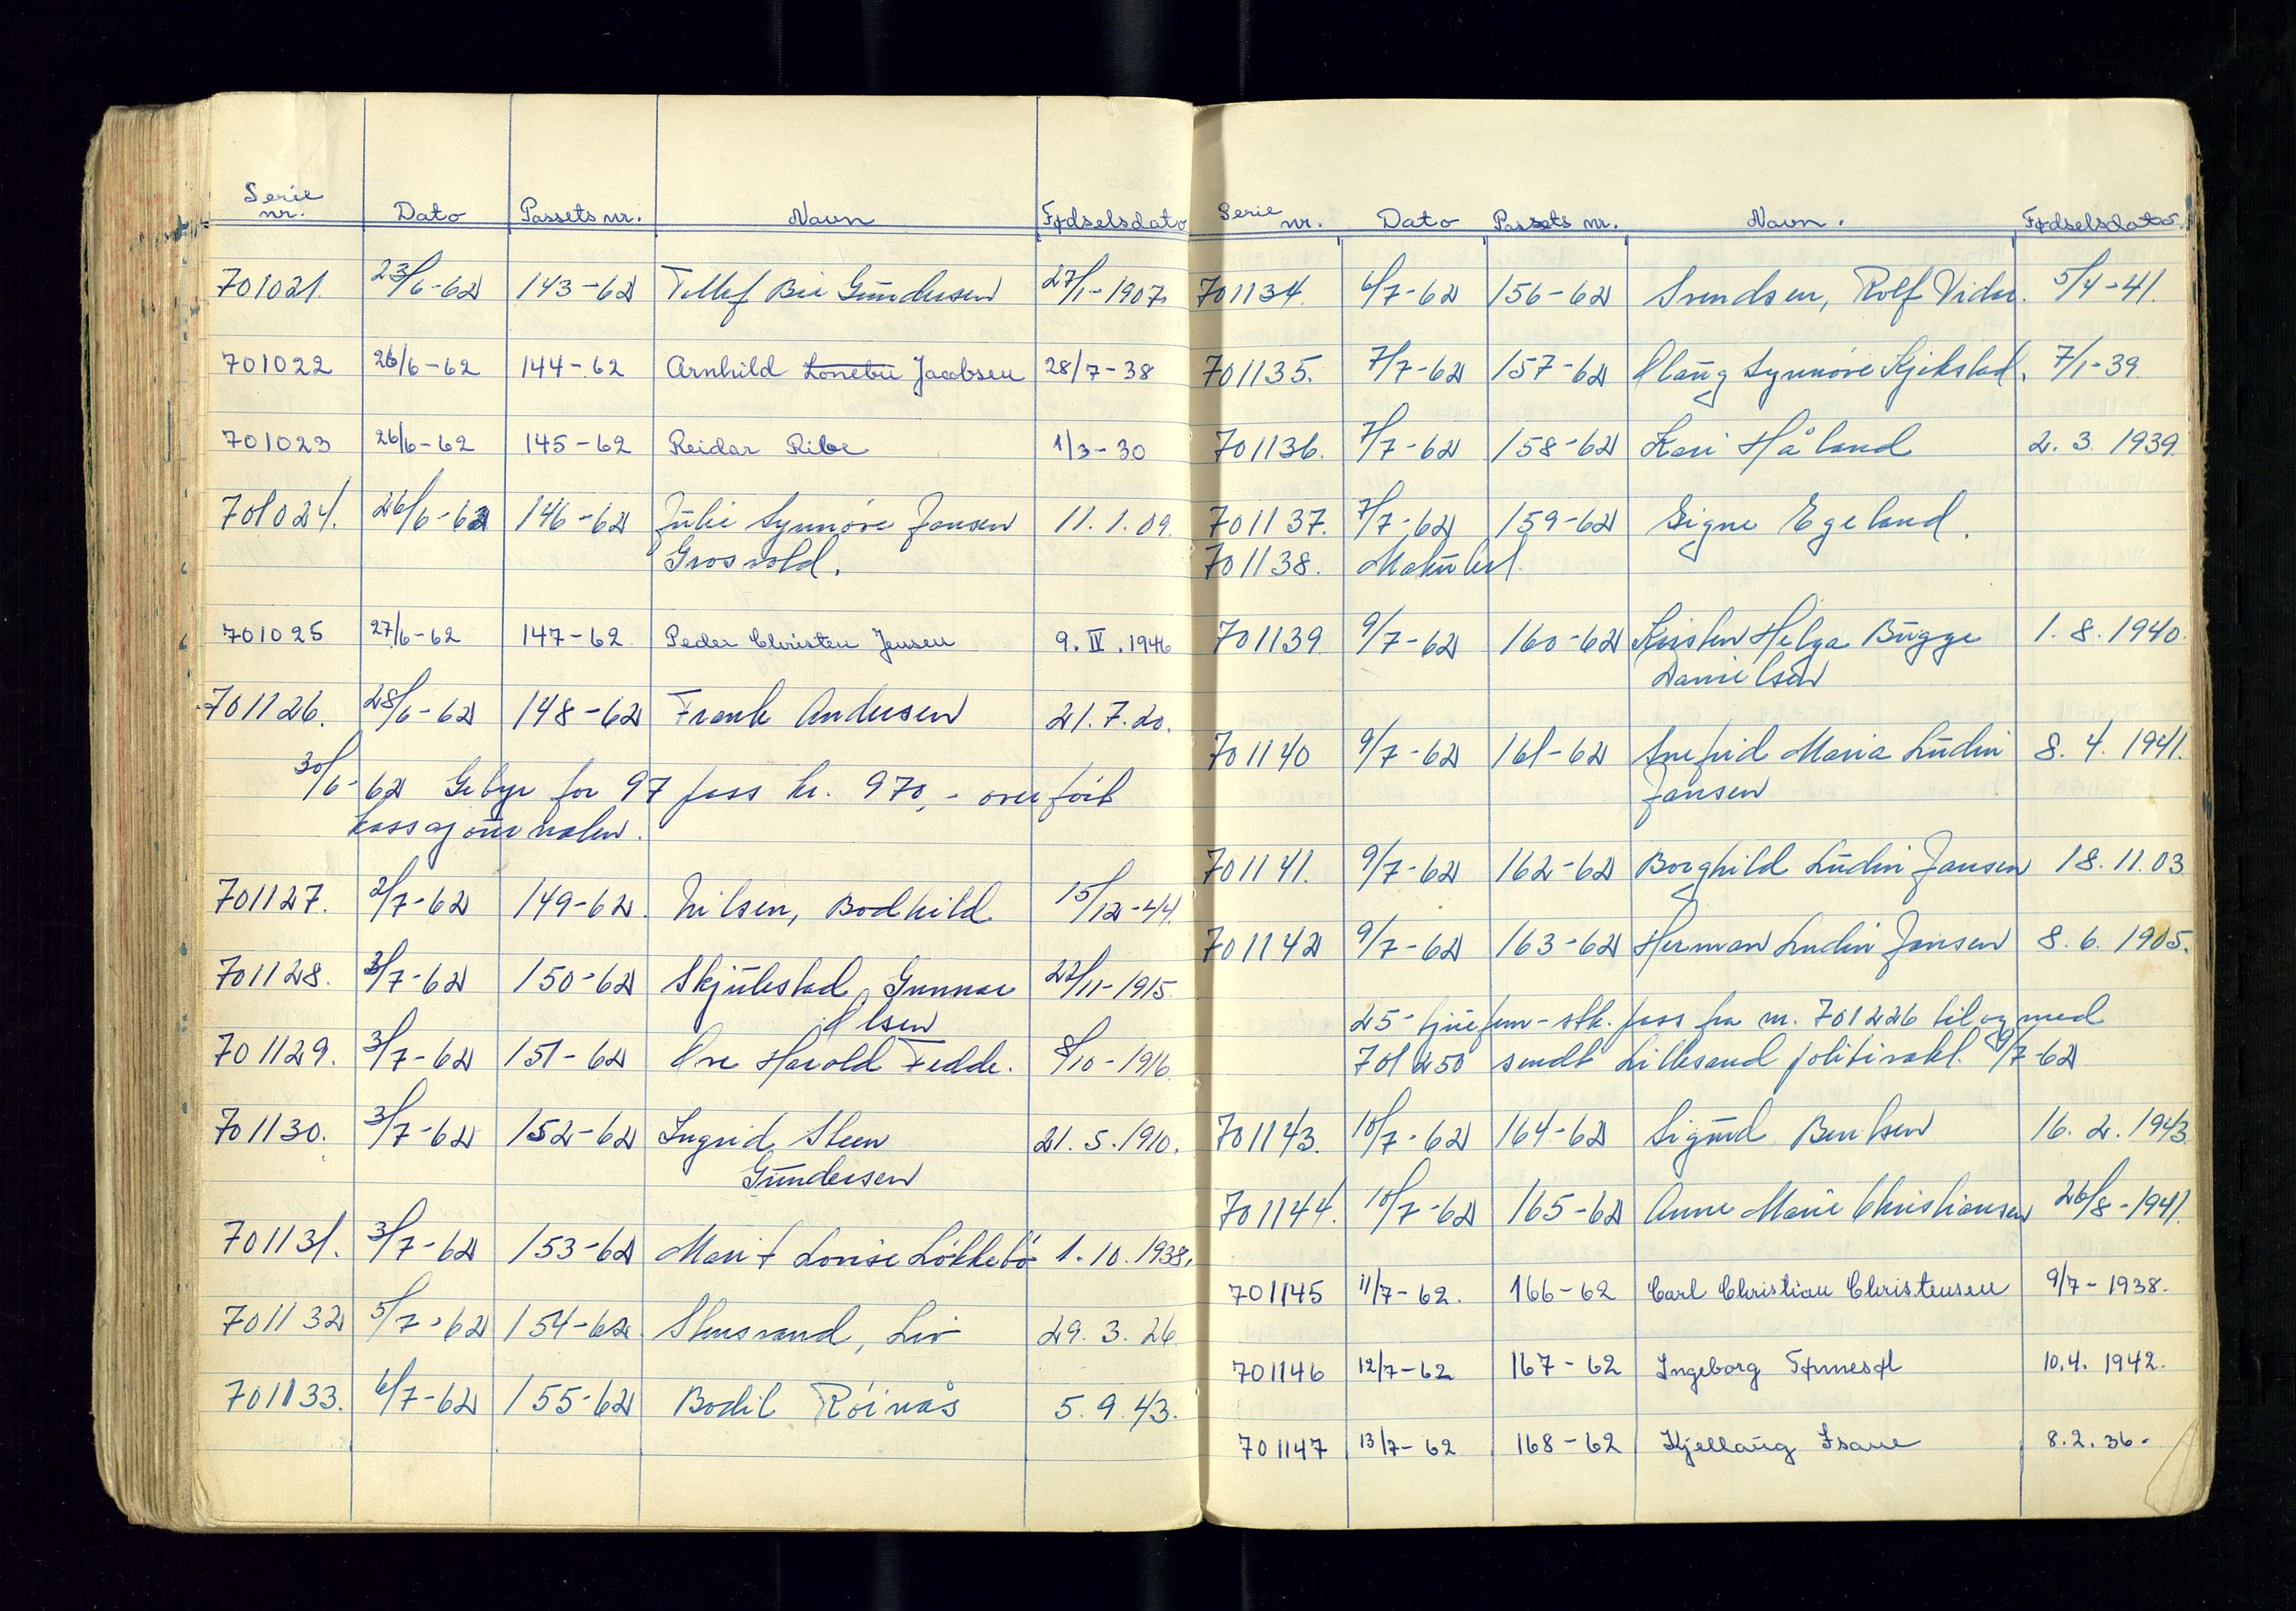 Serie nr. Dato Passets nr. Navn Fødselsdato
701021. 23/6-62 143-62 Tellef Bie Gundersen 27/1-1907.
701022 26/6-62 144-62 Arnhild Lonebu Jacobsen 28/7-38
701023 26/6-62 145-62 Reidar Ribe 1/3-30
701024. 26/6-62 146-62 Julie Synnøve Jansen 11.1.09.
Grosvold.
701025 27/6-62 147-62 Peder Christen Jensen 9.IV.1946
701126. 28/6-62 148-62 Frank Andersen 21.7.20.
30/6-62 Gebyr for 97 pass kr. 970,- overført
kassajournalen.
701127. 2/7-62 149-62. Nilsen, Bodhild 15/12-44.
701128. 3/7-62 150-62 Skjulestad, Gunnar 22/11-1915.
Olsen
701129. 3/7-62 151-62 Ove Harold Fedde. 8/10-1916.
701130. 3/7-62 152-62 Ingrid Steen 21.5.1910.
Gundersen
701131. 3/7-62 153-62 Marit Lovise Løkkebø 1.10.1938.
701132 5/7-62 154-62 Stensvand, Liv 29.3.26.
701133. 6/7-62 155-62 Bodil Röinås 5.9.43.
Serie nr. Dato Passets nr. Navn. Fødselsdato.
701134. 6/7-62 156-62 Svendsen, Rolf Vidar. 5/4-41.
701135. 7/7-62 157-62 Olaug Synnøve Kjikstad. 7/1-39.
701136. 7/7-62 158-62 Kari Håland 2.3.1939.
701137. 7/7-62 159-62 Signe Egeland.
701138. Makulert.
701139 9/7-62 160-62 Kirsten Helga Bugge 1.8.1940.
Danielsen
701140 9/7-62 161-62 Snefrid Maria Ludin 8.4.1941.
Jansen
701141. 9/7-62 162-62 Borghild Ludin Jansen 18.11.03.
701142 9/7-62 163-62 Herman Ludin Jansen 8.6.1905.
25-tjuefem-stk. pass fra nr. 701226 til og med
701250 sendt Lillesand politivakt. 9/7-62
701143. 10/7-62 164-62 Sigurd Bentsen 16.2.1943.
701144. 10/7-62 165-62 Anne Marie Christiansen 26/8-1941.
701145 11/7-62. 166-62 Carl Christian Christensen 9/7-1938.
701146 12/7-62 167-62 Ingeborg Tønnesøl 10.4.1942.
701147 13/7-62 168-62 Kjellaug Isane 8.2.36.